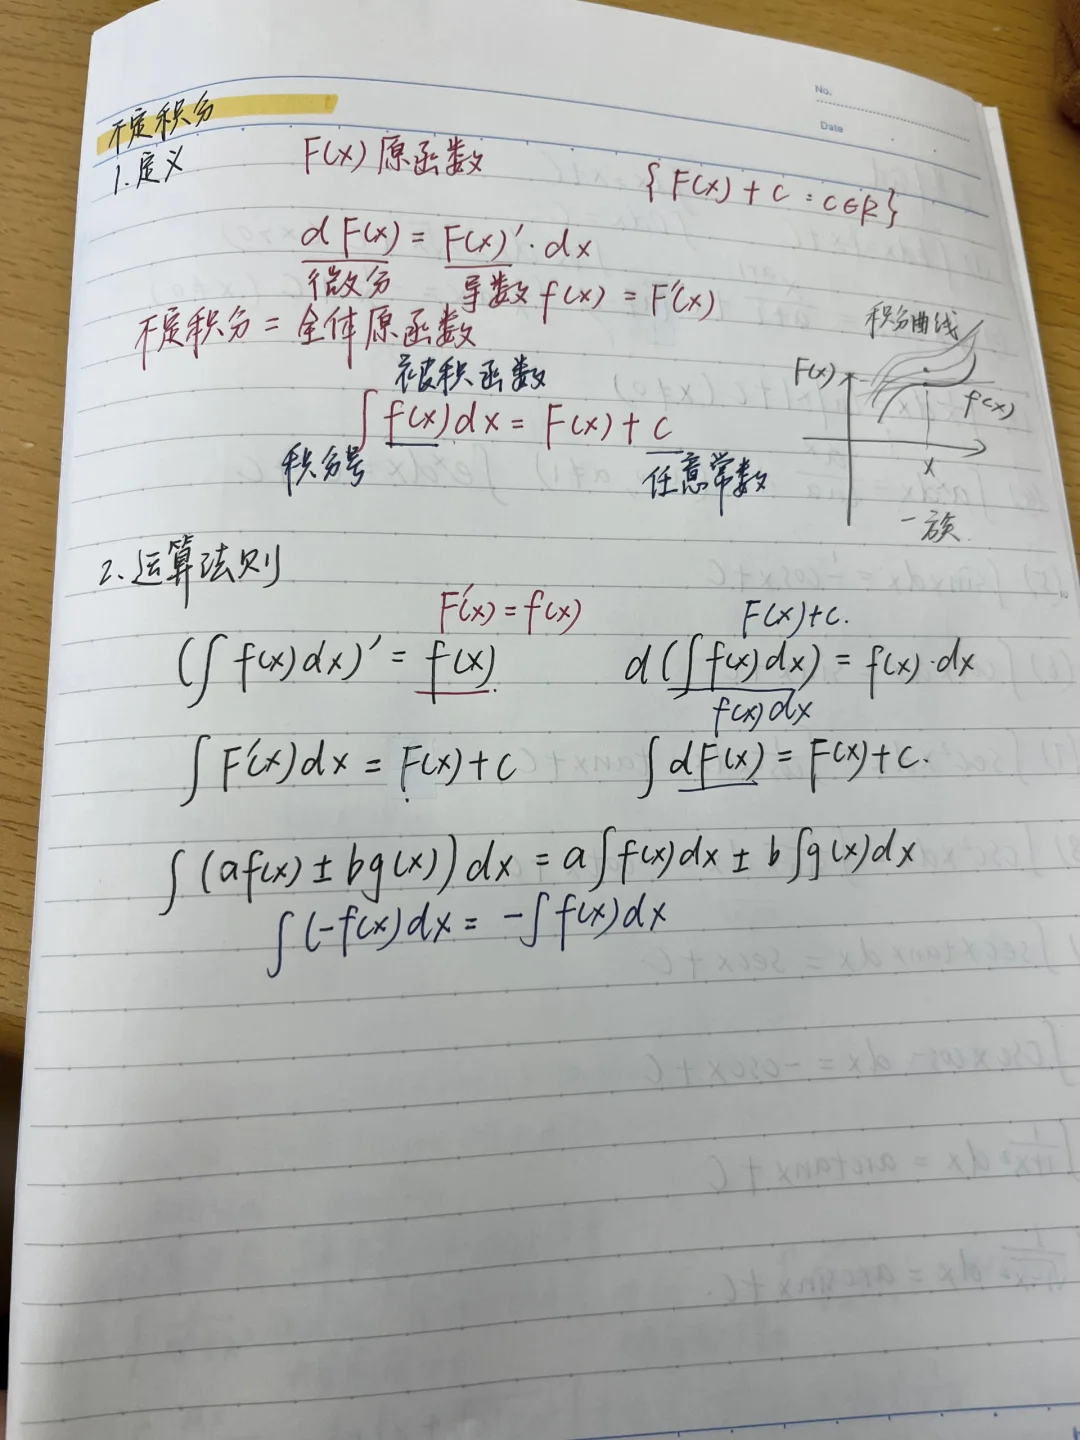 No.
Date
不定积分
1.定义
F(x)原函数
{F(x)+C:C∈R}
dF(x)=F(x)′·dx
微分 导数 f(x)=F′(x)
不定积分=全体原函数
被积函数
∫f(x)dx=F(x)+C
积分号 任意常数
积分曲线
F(x)
f(x)
x
一族.
2.运算法则
F′(x)=f(x) F(x)+C.
(∫f(x)dx)′=f(x) d(∫f(x)dx)=f(x)·dx
f(x)dx
∫F′(x)dx=F(x)+C ∫dF(x)=F(x)+C.
∫(af(x)±bg(x))dx=a∫f(x)dx±b∫g(x)dx
∫(-f(x)dx=-∫f(x)dx